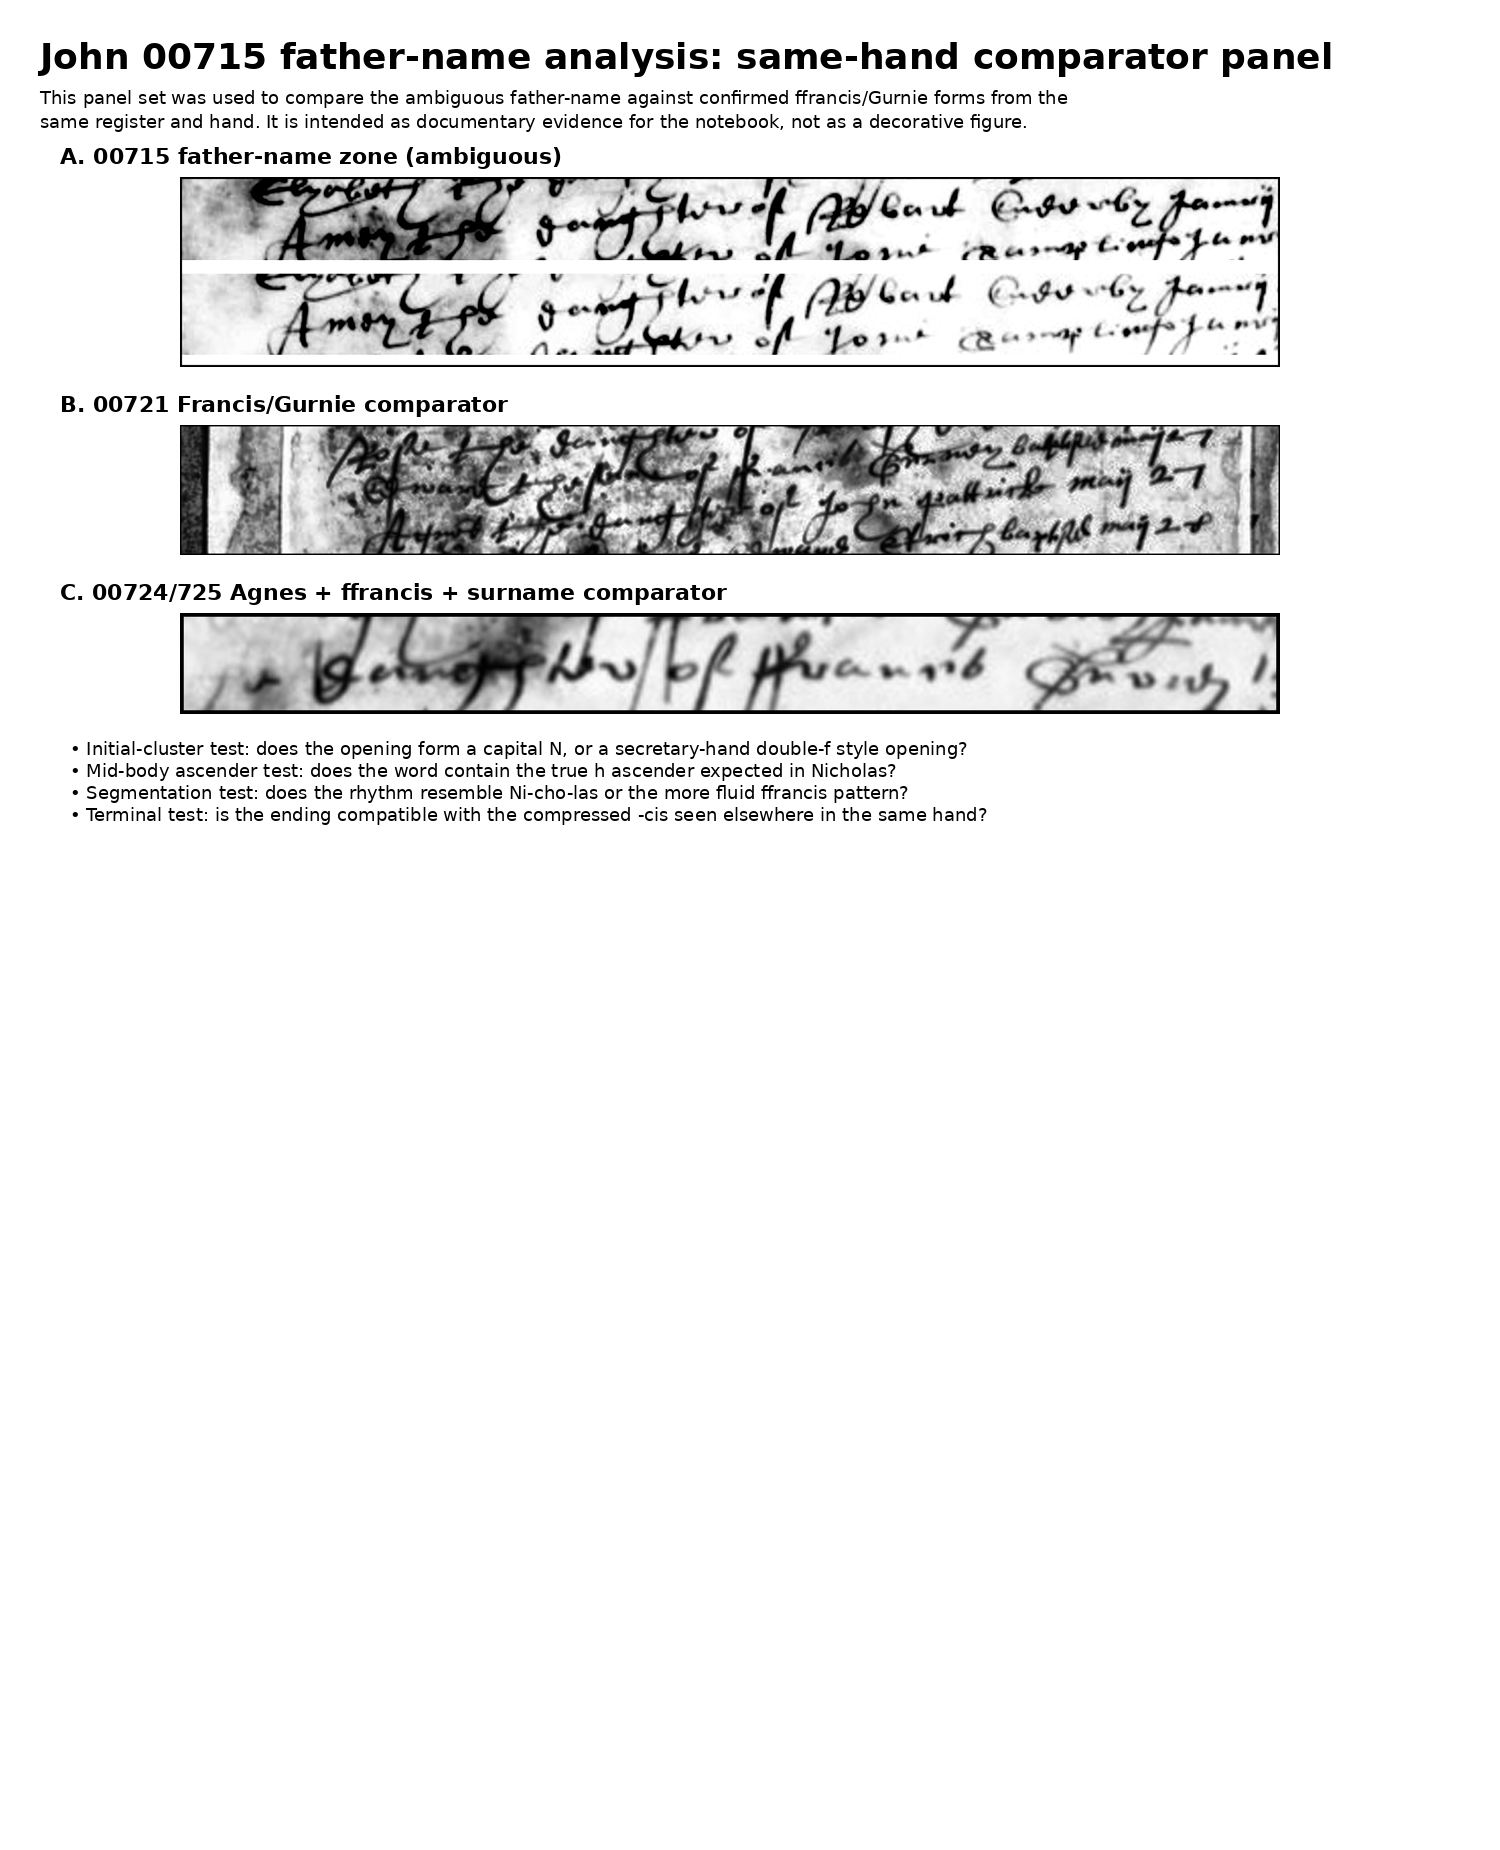 John 00715 father-name analysis: same-hand comparator panel
This panel set was used to compare the ambiguous father-name against confirmed ffrancis/Gurnie forms from the
same register and hand. It is intended as documentary evidence for the notebook, not as a decorative figure.
A. 00715 father-name zone (ambiguous)
Elyzabeth the
Amey the daughter of Robart Enderby
daughter of
Elyzabeth
Amey the daughter of Robart Enderby
daughter of
B. 00721 Francis/Gurnie comparator
the daughter of
the sonne of francis Gurney baptised maij
the daughter of John pattrick maij 27
baptised maij 28
C. 00724/725 Agnes + ffrancis + surname comparator
daughter of ffrancis Gurney
• Initial-cluster test: does the opening form a capital N, or a secretary-hand double-f style opening?
• Mid-body ascender test: does the word contain the true h ascender expected in Nicholas?
• Segmentation test: does the rhythm resemble Ni-cho-las or the more fluid ffrancis pattern?
• Terminal test: is the ending compatible with the compressed -cis seen elsewhere in the same hand?